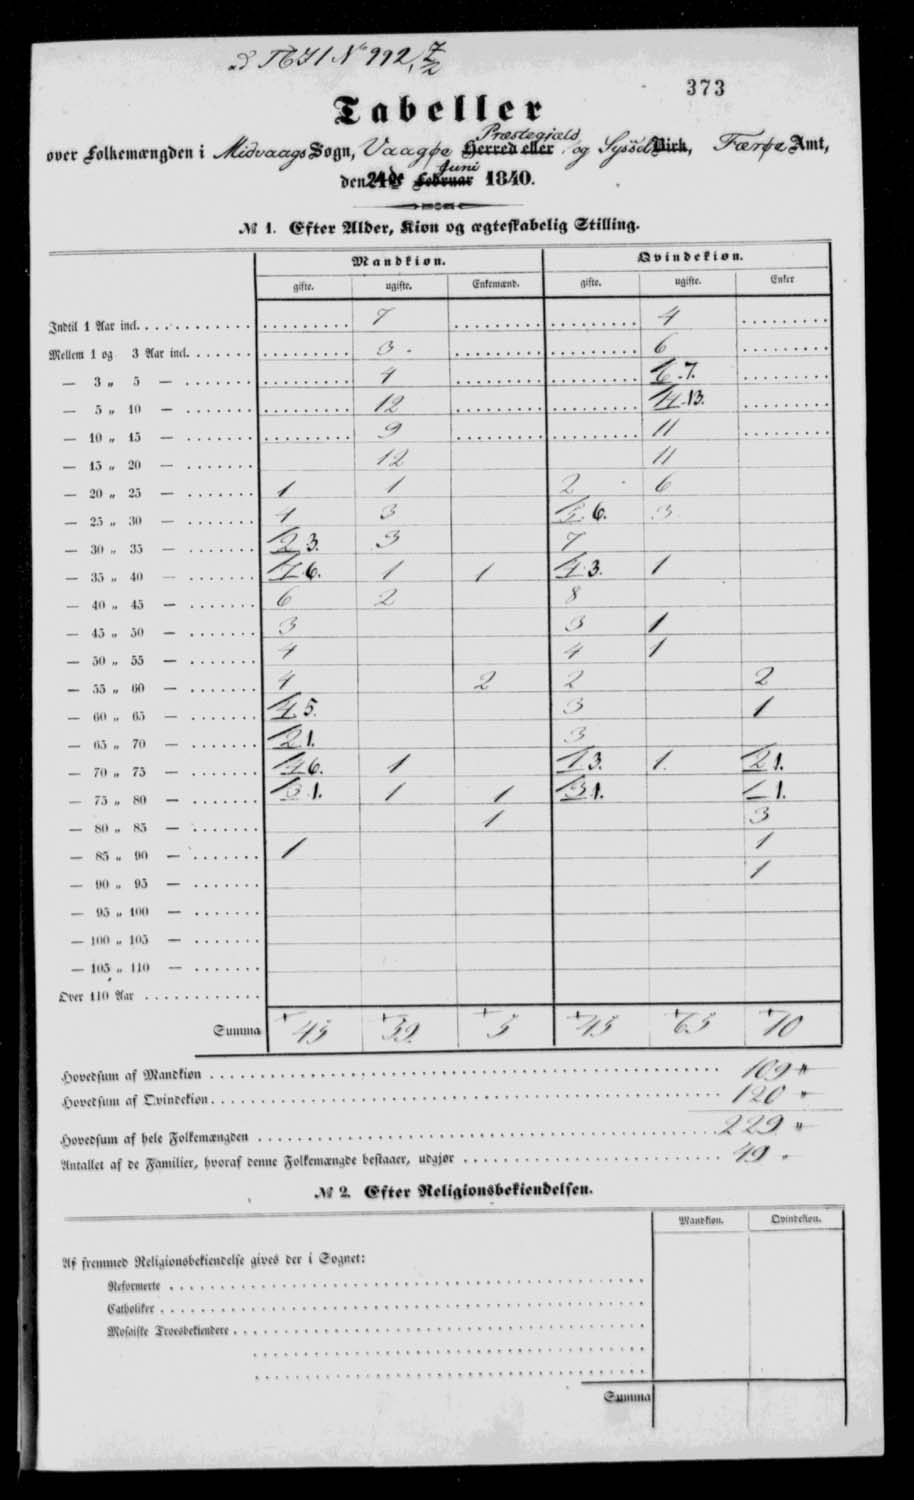 373
Tabeller
over Folkemængden i Midvaags Sogn, Vaagøe Præstegjæld Herred eller og Syssel Birk, Færøe Amt,
den Juni Februar 1840.
№ 1. Efter Alder, Kiøn og ægteskabelig Stilling.
Mandkiøn. Qvindekiøn.
gifte. ugifte. Enkemænd. gifte. ugifte. Enker
Indtil 1 Aar incl. 7 4
Mellem 1 og 3 Aar incl. 3 6
— 3 „ 5 — 4 6 7.
— 5 „ 10 — 12 14 13.
— 10 „ 15 — 9 11
— 15 „ 20 — 12 11
— 20 „ 25 — 1 1 2 6
— 25 „ 30 — 4 3 5 6. 3
— 30 „ 35 — 2 3. 3 7
— 35 „ 40 — 7 6. 1 1 4 3. 1
— 40 „ 45 — 6 2 8
— 45 „ 50 — 3 3 1
— 50 „ 55 — 4 4 1
— 55 „ 60 — 4 2 2 2
— 60 „ 65 — 4 5. 3 1
— 65 „ 70 — 2 1. 3
— 70 „ 75 — 4 6. 1 1 3. 1. 2 1.
— 75 „ 80 — 3 1. 1 1 3 1. 1 1.
— 80 „ 85 — 1 3
— 85 „ 90 — 1 1
— 90 „ 95 — 1
— 95 „ 100 —
— 100 „ 105 —
— 105 „ 110 —
Over 110 Aar
Summa 45 59. 5 45 65 10
Hovedsum af Mandkiøn 109 "
Hovedsum af Qvindekiøn 120 "
Hovedsum af hele Folkemængden 229 "
Antallet af de Familier, hvoraf denne Folkemængde bestaaer, udgjør 49 "
№ 2. Efter Religionsbekiendelsen.
Mandkiøn. Qvindekiøn.
Af fremmed Religionsbekiendelse gives der i Sognet:
Reformerte
Catholiker
Mosaiske Troesbekiendere
Summa